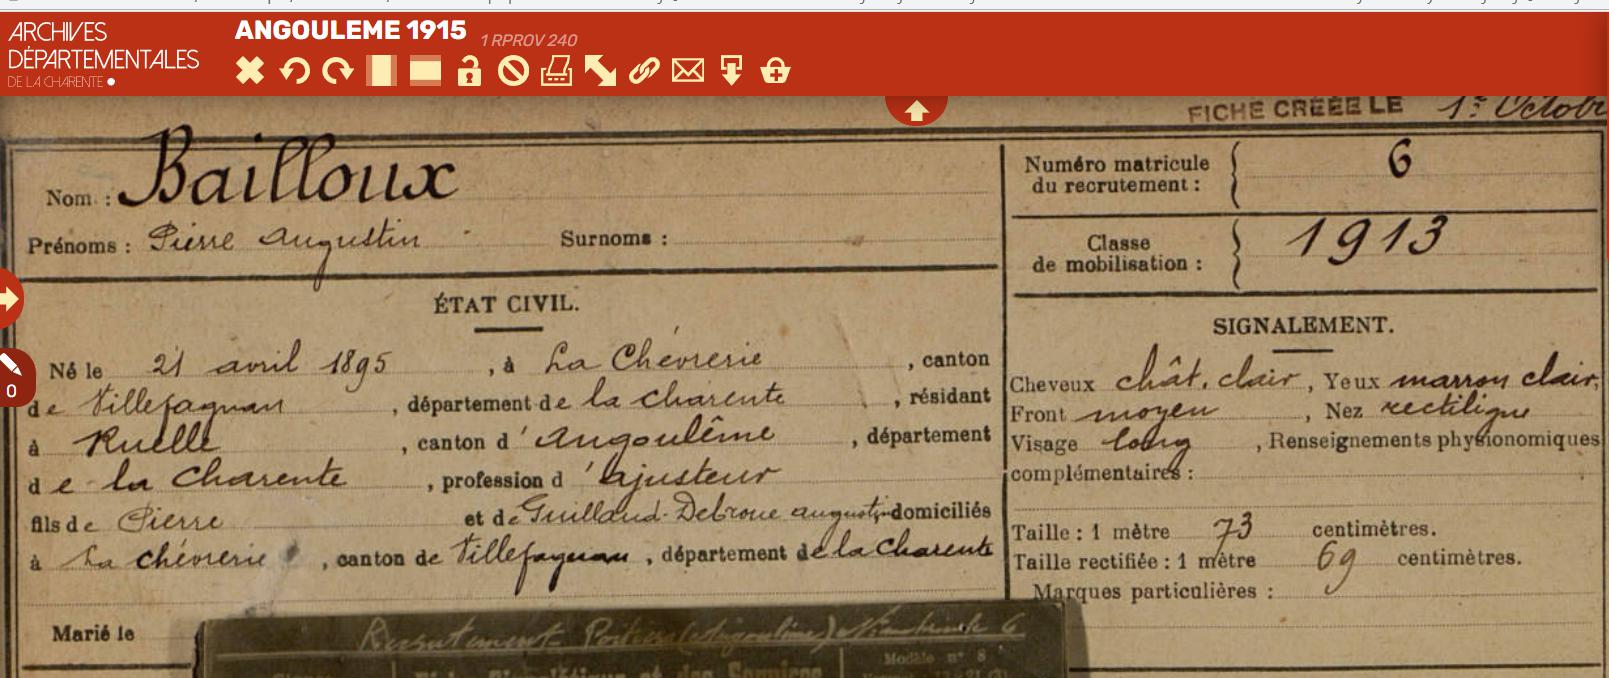 ARCHIVES
DÉPARTEMENTALES
DE LA CHARENTE
ANGOULEME 1915 1 RPROV 240
FICHE CRÉÉE LE 1er Octobr
Nom : Bailloux
Numéro matricule du recrutement : 6
Prénoms : Pierre Augustin Surnoms :
Classe de mobilisation : 1913
ÉTAT CIVIL.
Né le 21 avril 1895, à La Chévrerie, canton
de Villefagnan, département de la charente, résidant
à Ruelle, canton d'Angoulême, département
de la Charente, profession d'ajusteur
fils de Pierre et de Guilland-Debroue augustin domiciliés
à La chévrerie, canton de Villefagnan, département de la Charente
Marié le
SIGNALEMENT.
Cheveux chât. clair, Yeux marron clair,
Front moyen, Nez rectiligne
Visage long, Renseignements physionomiques
complémentaires :
Taille : 1 mètre 73 centimètres.
Taille rectifiée : 1 mètre 69 centimètres.
Marques particulières :
0
Recrutement Poitiers (Angoulême) N° matricule 6
Modèle n° 8